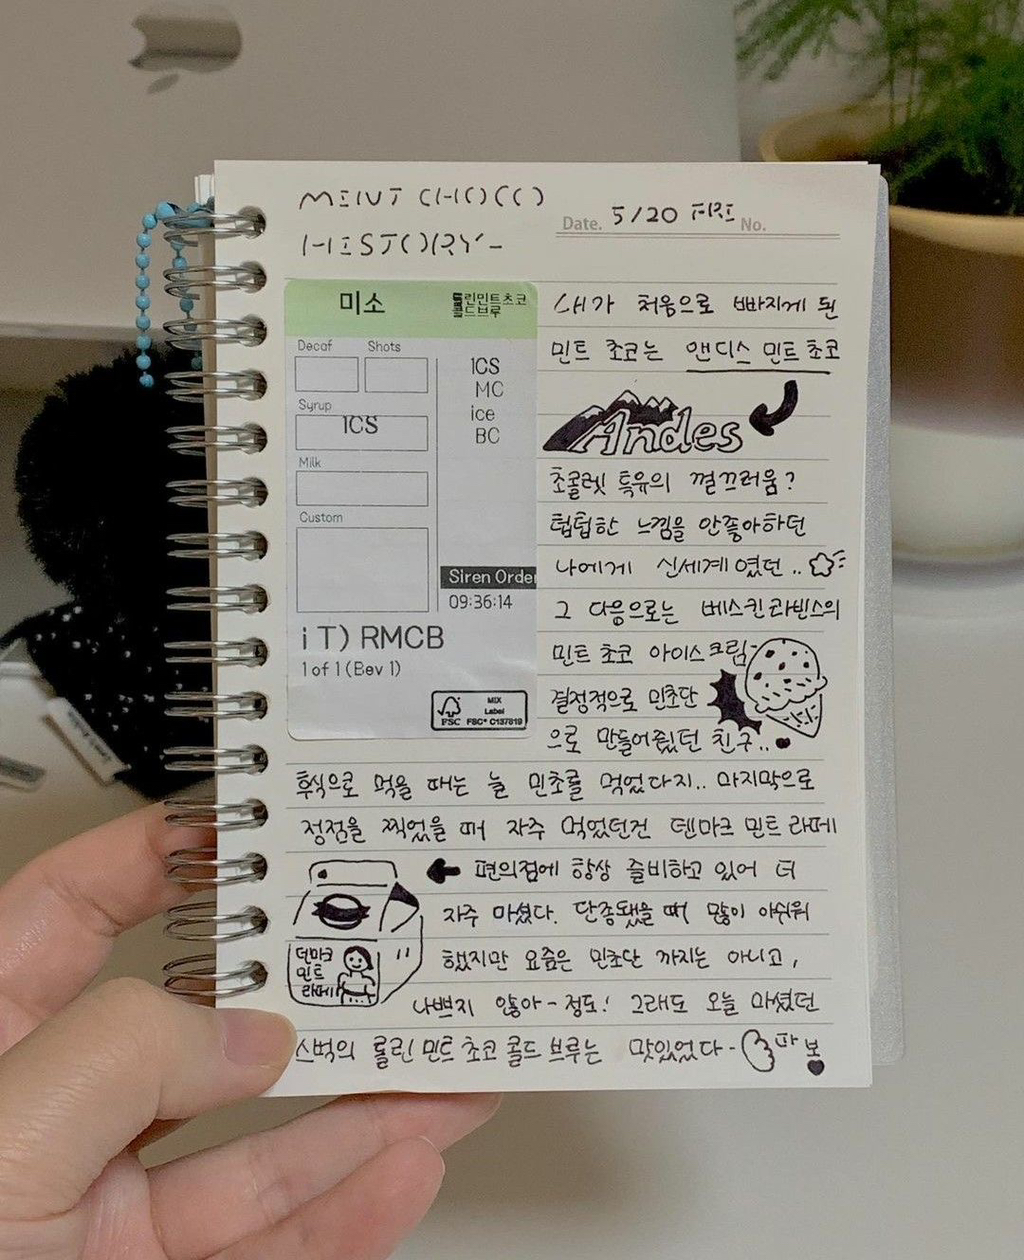 MINT CHOCO
HISTORY-
Date. 5/20 FRI No.
미소
롤린민트초코
콜드브루
Decaf Shots
Syrup
ICS
Milk
Custom
ICS
MC
ice
BC
Siren Order
09:36:14
i T) RMCB
1 of 1 (Bev 1)
FSC
MIX
Label
FSC® C137819
내가 처음으로 빠지게 된
민트 초코는 앤디스 민트 초코
Andes
초콜렛 특유의 껄끄러움?
텁텁한 느낌을 안좋아하던
나에게 신세계였던..
그 다음으로는 베스킨라빈스의
민트 초코 아이스크림-
결정적으로 민초단
으로 만들어줬던 친구..
후식으로 먹을 때는 늘 민초를 먹었다지.. 마지막으로
정점을 찍었을 때 자주 먹었던건 덴마크 민트 라떼
편의점에 항상 즐비하고 있어 더
자주 마셨다. 단종됐을 때 많이 아쉬워
했지만 요즘은 민초단 까지는 아니고,
덴마크
민트
라떼
나쁘지 않아- 정도! 그래도 오늘 마셨던
스벅의 롤린 민트 초코 콜드 브루는 맛있었다-